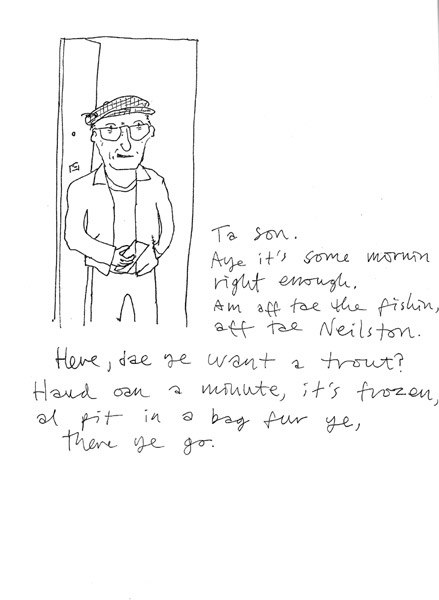 Ta son.
Aye it's some mornin
right enough.
Am aff tae the fishin,
aff tae Neilston.
Here, dae ye want a trout?
Haud oan a minute, it's frozen,
al pit in a bag fur ye,
there ye go.